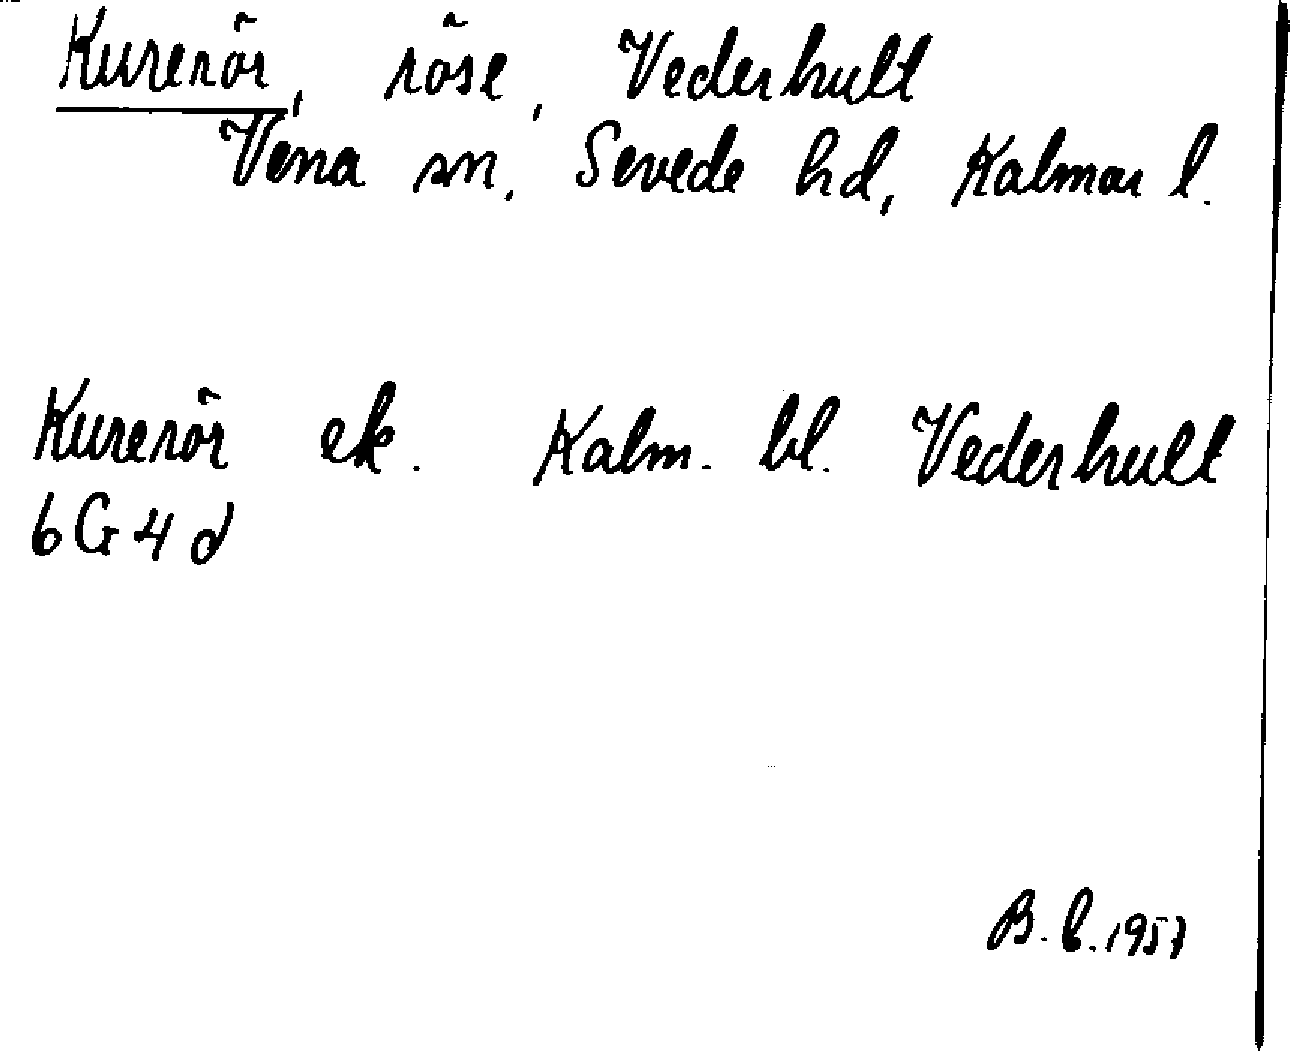 Kurerör, röse, Vederhult
Vena sn, Sevede hd, Kalmar l.
Kurerör ek. Kalm. bl. Vederhult
6G4d
B.b. 1957